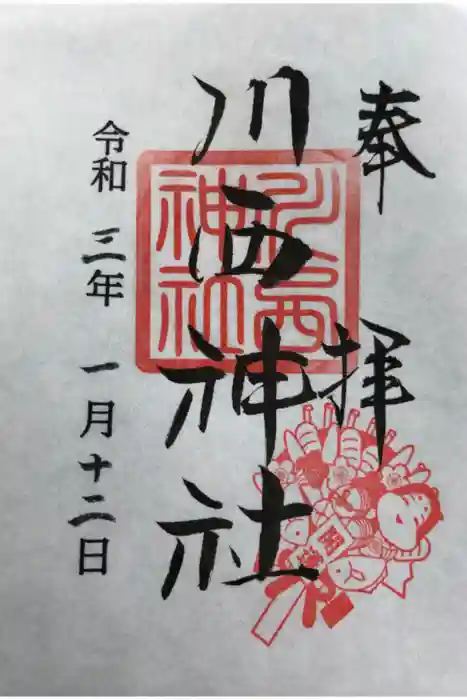 奉拝
川西神社
川西
神社
令和三年一月十二日